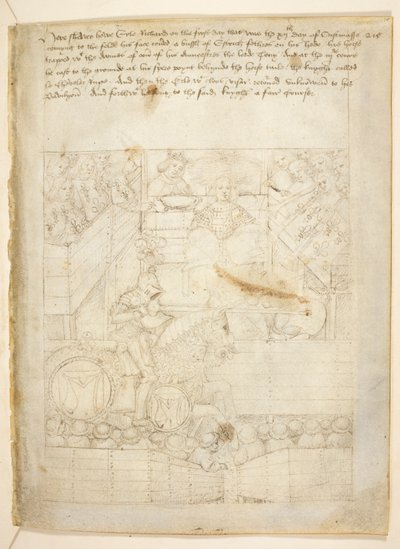 Here shewes howe Erle Richard on the first day that was the xij day of Cristmasse
comyng to the felde his face coverd a bussh of Estrich fethres on his hede his horse
trapped wt the Armes of one of his Auncestres the lorde Tony And at the iijde cours
he cast to the grounde at his spere poynt behynde the horse taile the knyght called
le Chevaler Ruge And then the Erle wt close visar retorned unknowen to his
Pavilyon And sent to the said knyght a faire Courser